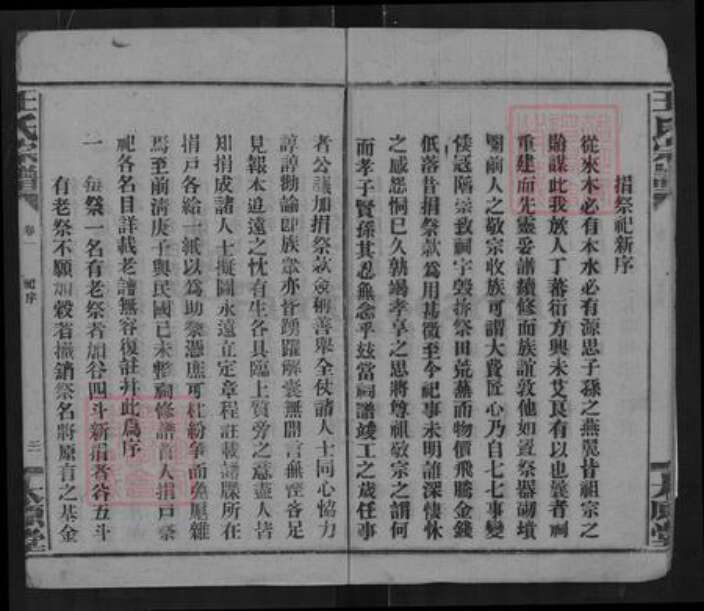 捐祭祀新序
從來木必有本水必有源思子孫之燕翼皆祖宗之
貽謀此我族人丁蕃衍方興未艾良有以也曩者祠
重建而先靈妥譜續修而族誼敦他如置祭器砌墳
塋前人之敬宗收族可謂大費匠心乃自七七事變
倭寇階祟致祠宇毀拚祭田荒蕪而物價飛騰金錢
低落昔捐祭款為用甚微至今祀事未明誰深悽怵
之感怨恫已久孰竭孝享之思將尊祖敬宗之謂何
而孝子賢孫其忍無念乎玆當祠譜竣工之歲任事
者公議加捐祭款僉稱善舉全仗諸人士同心協力
諄諄勸諭即族眾亦皆踴躍解囊無間言無慳吝足
見報本追遠之忱有生各具臨上質旁之意盡人皆
知捐成諸人士擬圖永遠立定章程註載譜牒所在
捐戶各給一紙以為助祭憑廕可杜紛爭而免龐雜
焉至前清庚子與民國己未暫祠修譜首人捐戶祭
祀各名目詳載老譜無容復註幷此為序
一 每祭一名有老祭者加谷四斗新捐者谷五斗
有老祭不願加穀者撤銷祭名將原有之基金
王氏宗譜
卷一
祀序
三
太原堂
王氏宗譜
太原堂